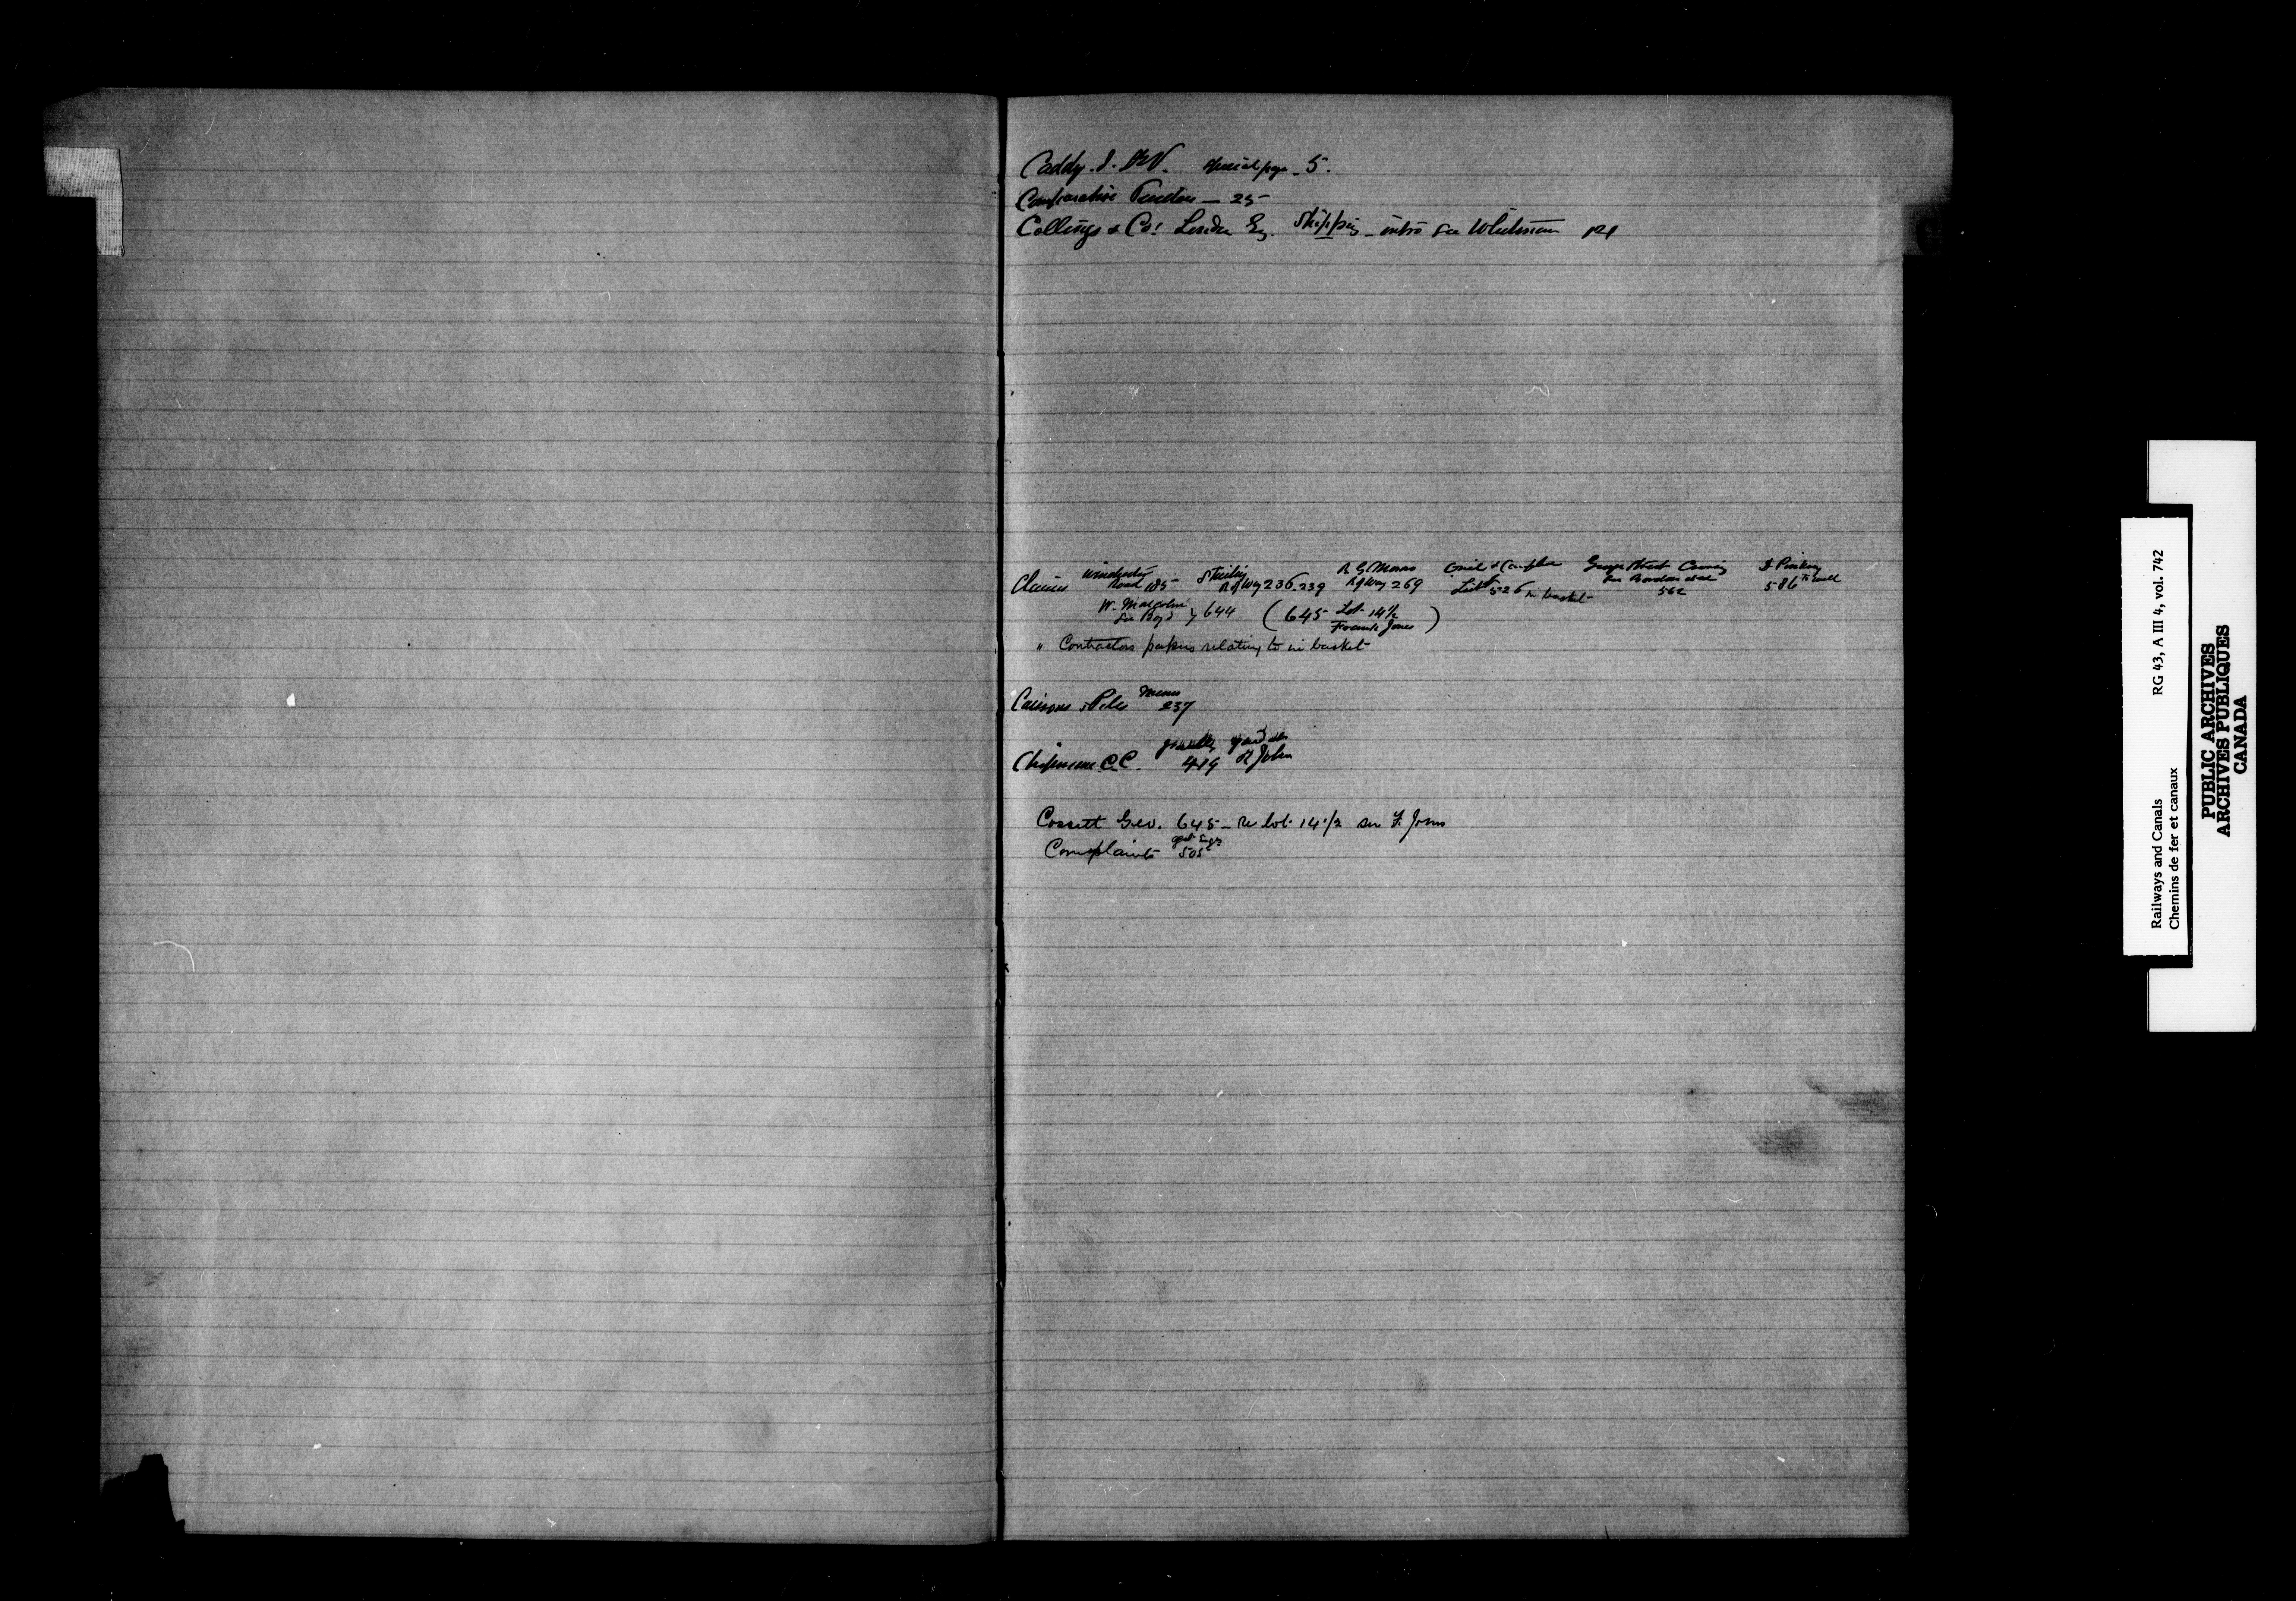 Caddy. J. St V. special page - 5.
Comparative Tenders — 25
Collings & Co. London Eng. Shipping - intro see Whitman 121
Claims Winchester Road 185 Stirling R of Way 236-239 R G Morris R of Way 269 & Campbell List 526 in basket George Street Crossing See Borden deal 562 586
W. Malcolm See Boyd } 644 (645 Lot 14½ Francis Jones)
" Contractors papers relating to in basket
Caissons & Piles 237
Chipman C.C. 419 St John
Cossett Geo. 645 - re lot 14½ see F. Jones
Complaints agst Engr 505
Railways and Canals RG 43, A III 4, vol. 742
Chemins de fer et canaux
PUBLIC ARCHIVES
ARCHIVES PUBLIQUES
CANADA